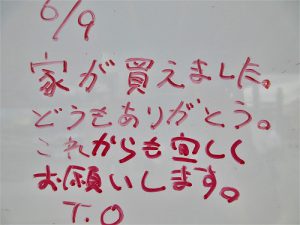 6/9
家が買えました。
どうもありがとう。
これからも宜しく
お願いします。
T.O